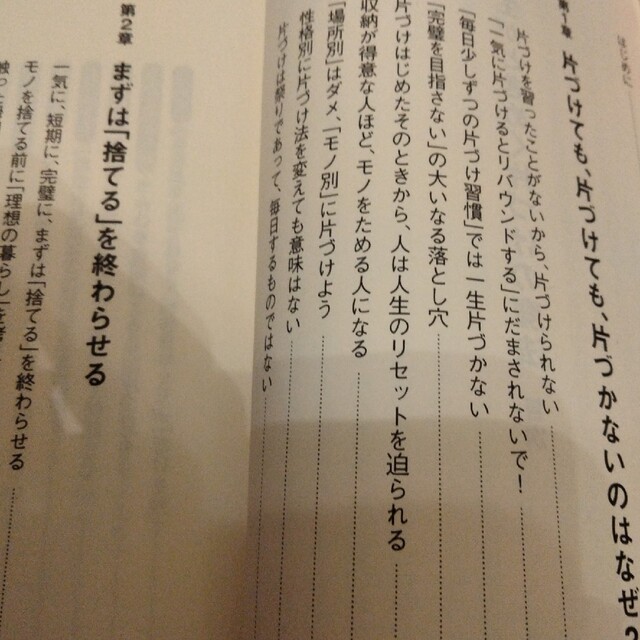 はじめに
第1章 片づけても、片づけても、片づかないのはなぜ?
片づけを習ったことがないから、片づけられない
「一気に片づけるとリバウンドする」にだまされないで!
「毎日少しずつの片づけ習慣」では一生片づかない
「完璧を目指さない」の大いなる落とし穴
片づけはじめたそのときから、人は人生のリセットを迫られる
収納が得意な人ほど、モノをためる人になる
「場所別」はダメ、「モノ別」に片づけよう
性格別に片づけ法を変えても意味はない
片づけは祭りであって、毎日するものではない
第2章 まずは「捨てる」を終わらせる
一気に、短期に、完璧に、まずは「捨てる」を終わらせる
モノを捨てる前に「理想の暮らし」を考